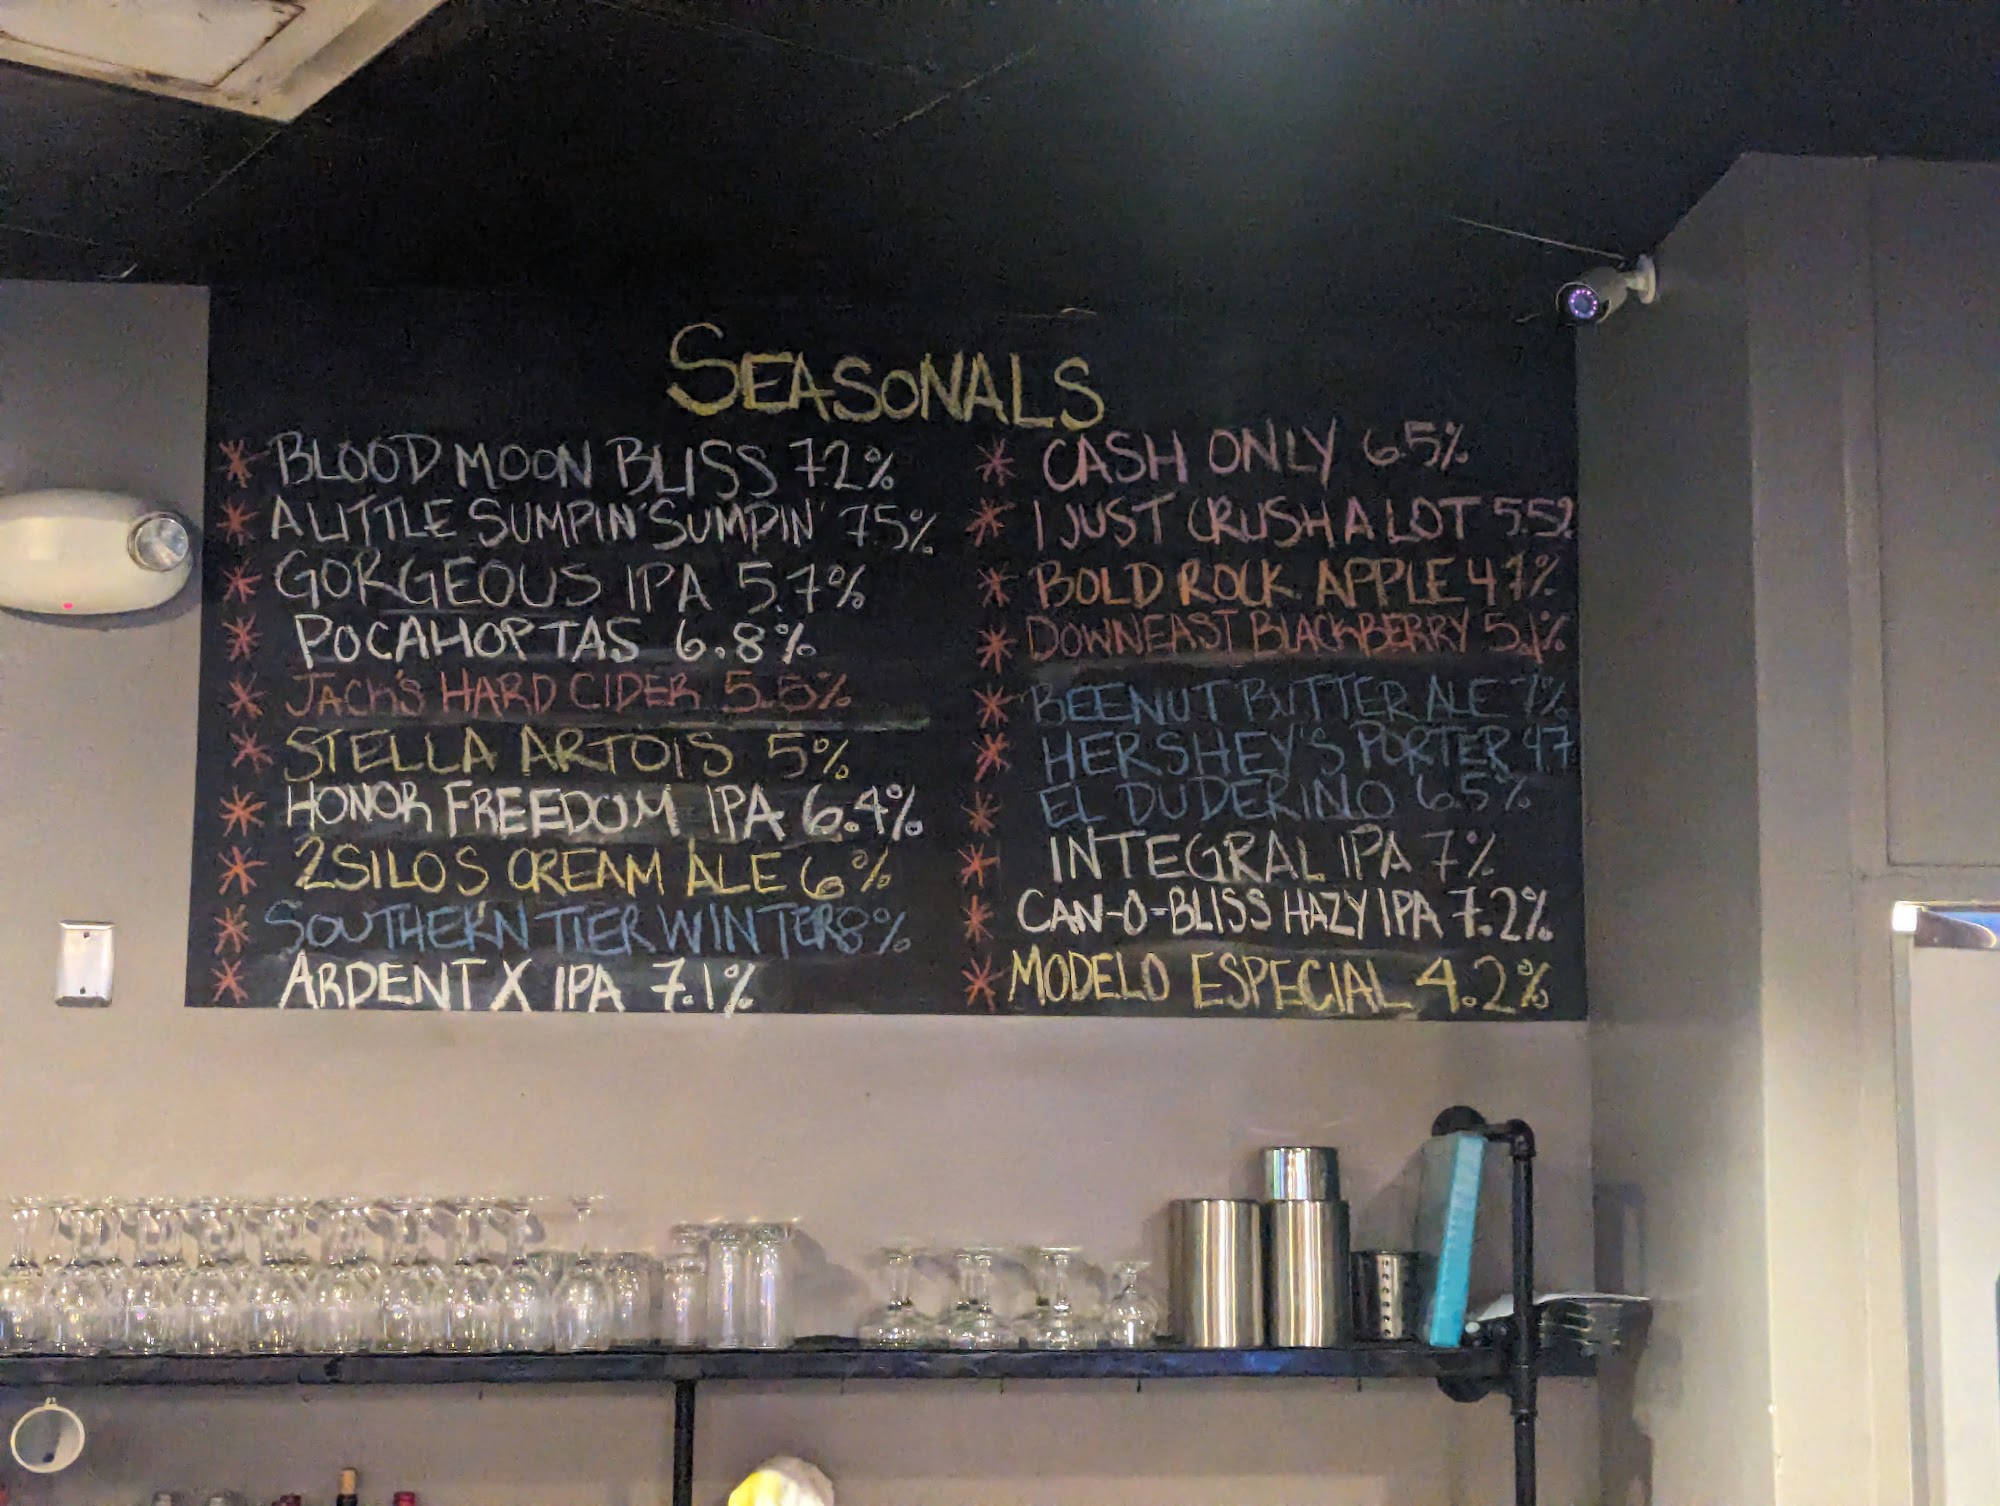 SEASONALS
* BLOOD MOON BLISS 7.2%
* A LITTLE SUMPIN' SUMPIN' 7.5%
* GORGEOUS IPA 5.7%
* POCAHOPTAS 6.8%
* JACK'S HARD CIDER 5.5%
* STELLA ARTOIS 5%
* HONOR FREEDOM IPA 6.4%
* 2SILOS CREAM ALE 6%
* SOUTHERN TIER WINTER 8%
* ARDENT X IPA 7.1%
* CASH ONLY 6.5%
* I JUST CRUSH A LOT 5.5%
* BOLD ROCK APPLE 4.7%
* DOWNEAST BLACKBERRY 5.1%
* BEENUT BUTTER ALE 7%
* HERSHEY'S PORTER 4.7
* EL DUDERINO 6.5%
* INTEGRAL IPA 7%
* CAN-O-BLISS HAZY IPA 7.2%
* MODELO ESPECIAL 4.2%